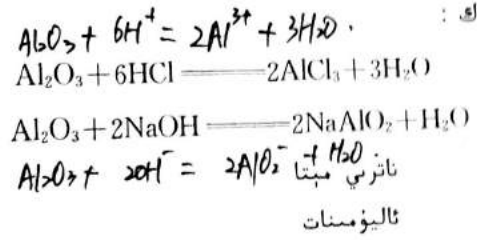 ك :
Al₂O₃ + 6H⁺ = 2Al³⁺ + 3H₂O.
Al₂O₃+6HCl═══2AlCl₃+3H₂O
Al₂O₃+2NaOH═══2NaAlO₂+H₂O
Al₂O₃+ 2OH⁻ = 2AlO₂⁻ + H₂O
ناترىي مېتا
ئاليۇمىنات